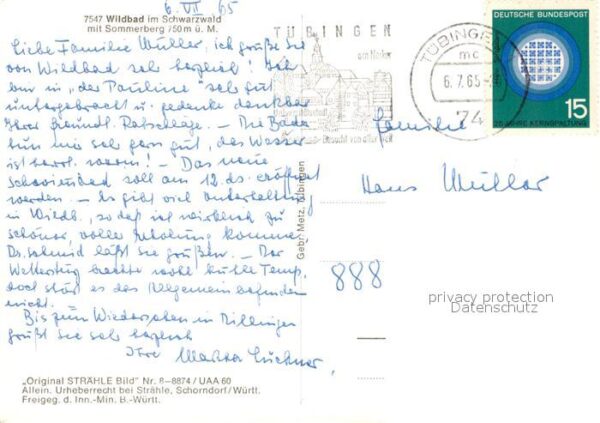 6. VII 65
7547 Wildbad im Schwarzwald
mit Sommerberg 750 m ü. M.
Liebe Familie Müller, ich grüße Sie
von Wildbad sehr herzlich! Hab,
bin in "der Pauline" sehr gut
untergebracht u. gedenke dankbar
Ihrer freundl. Ratschläge. – Die Bäder
tun mir sehr gern gut, das Wasser
ist herrl. warm! – Das neue
soll am 12. ds. eröffnet
werden – Es gibt viel Unterhaltung
in Wildb., so daß ich wirklich zu
schöner, voller Erholung komme,
Dr. Schmid läßt sie grüßen. – Der
Wettersturz brachte wohl kühle Temp.
doch stört es das Allgemeinbefinden
nicht.
Bis zum Wiedersehen in Dillingen
grüßt sie sehr herzlich
Ihre Martha
„Original STRÄHLE Bild" Nr. 8–8874 / UAA 60
Allein. Urheberrecht bei Strähle, Schorndorf/Württ.
Freigeg. d. Inn.-Min. B.-Württ.
Gebr. Metz, Tübingen
TÜBINGEN
am Neckar
Besucht von aller Welt
TÜBINGEN
mc
6.7.65
74
DEUTSCHE BUNDESPOST
15
25 JAHRE KERNSPALTUNG
Familie
Hans Müller
888
privacy protection
Datenschutz